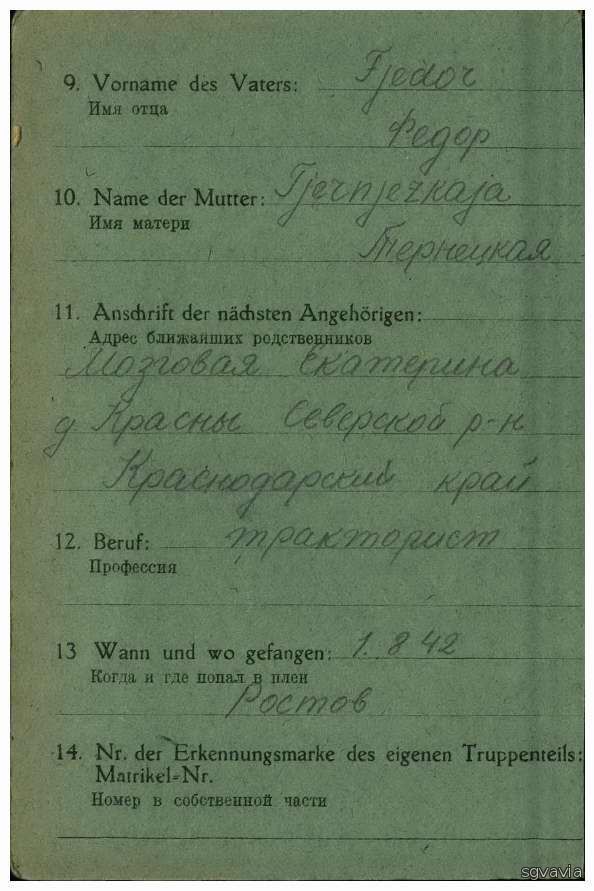 9. Vorname des Vaters: Fjedor
Имя отца
Федор
10. Name der Mutter: Tjernjezkaja
Имя матери
Тернецкая
11. Anschrift der nächsten Angehörigen:
Адрес ближайших родственников
Мозговая Екатерина
д Красны Северской р-н
Краснодарский край
12. Beruf: тракторист
Профессия
13 Wann und wo gefangen: 1. 8 42
Когда и где попал в плен
Ростов
14. Nr. der Erkennungsmarke des eigenen Truppenteils:
Matrikel-Nr.
Номер в собственной части
sgvavia